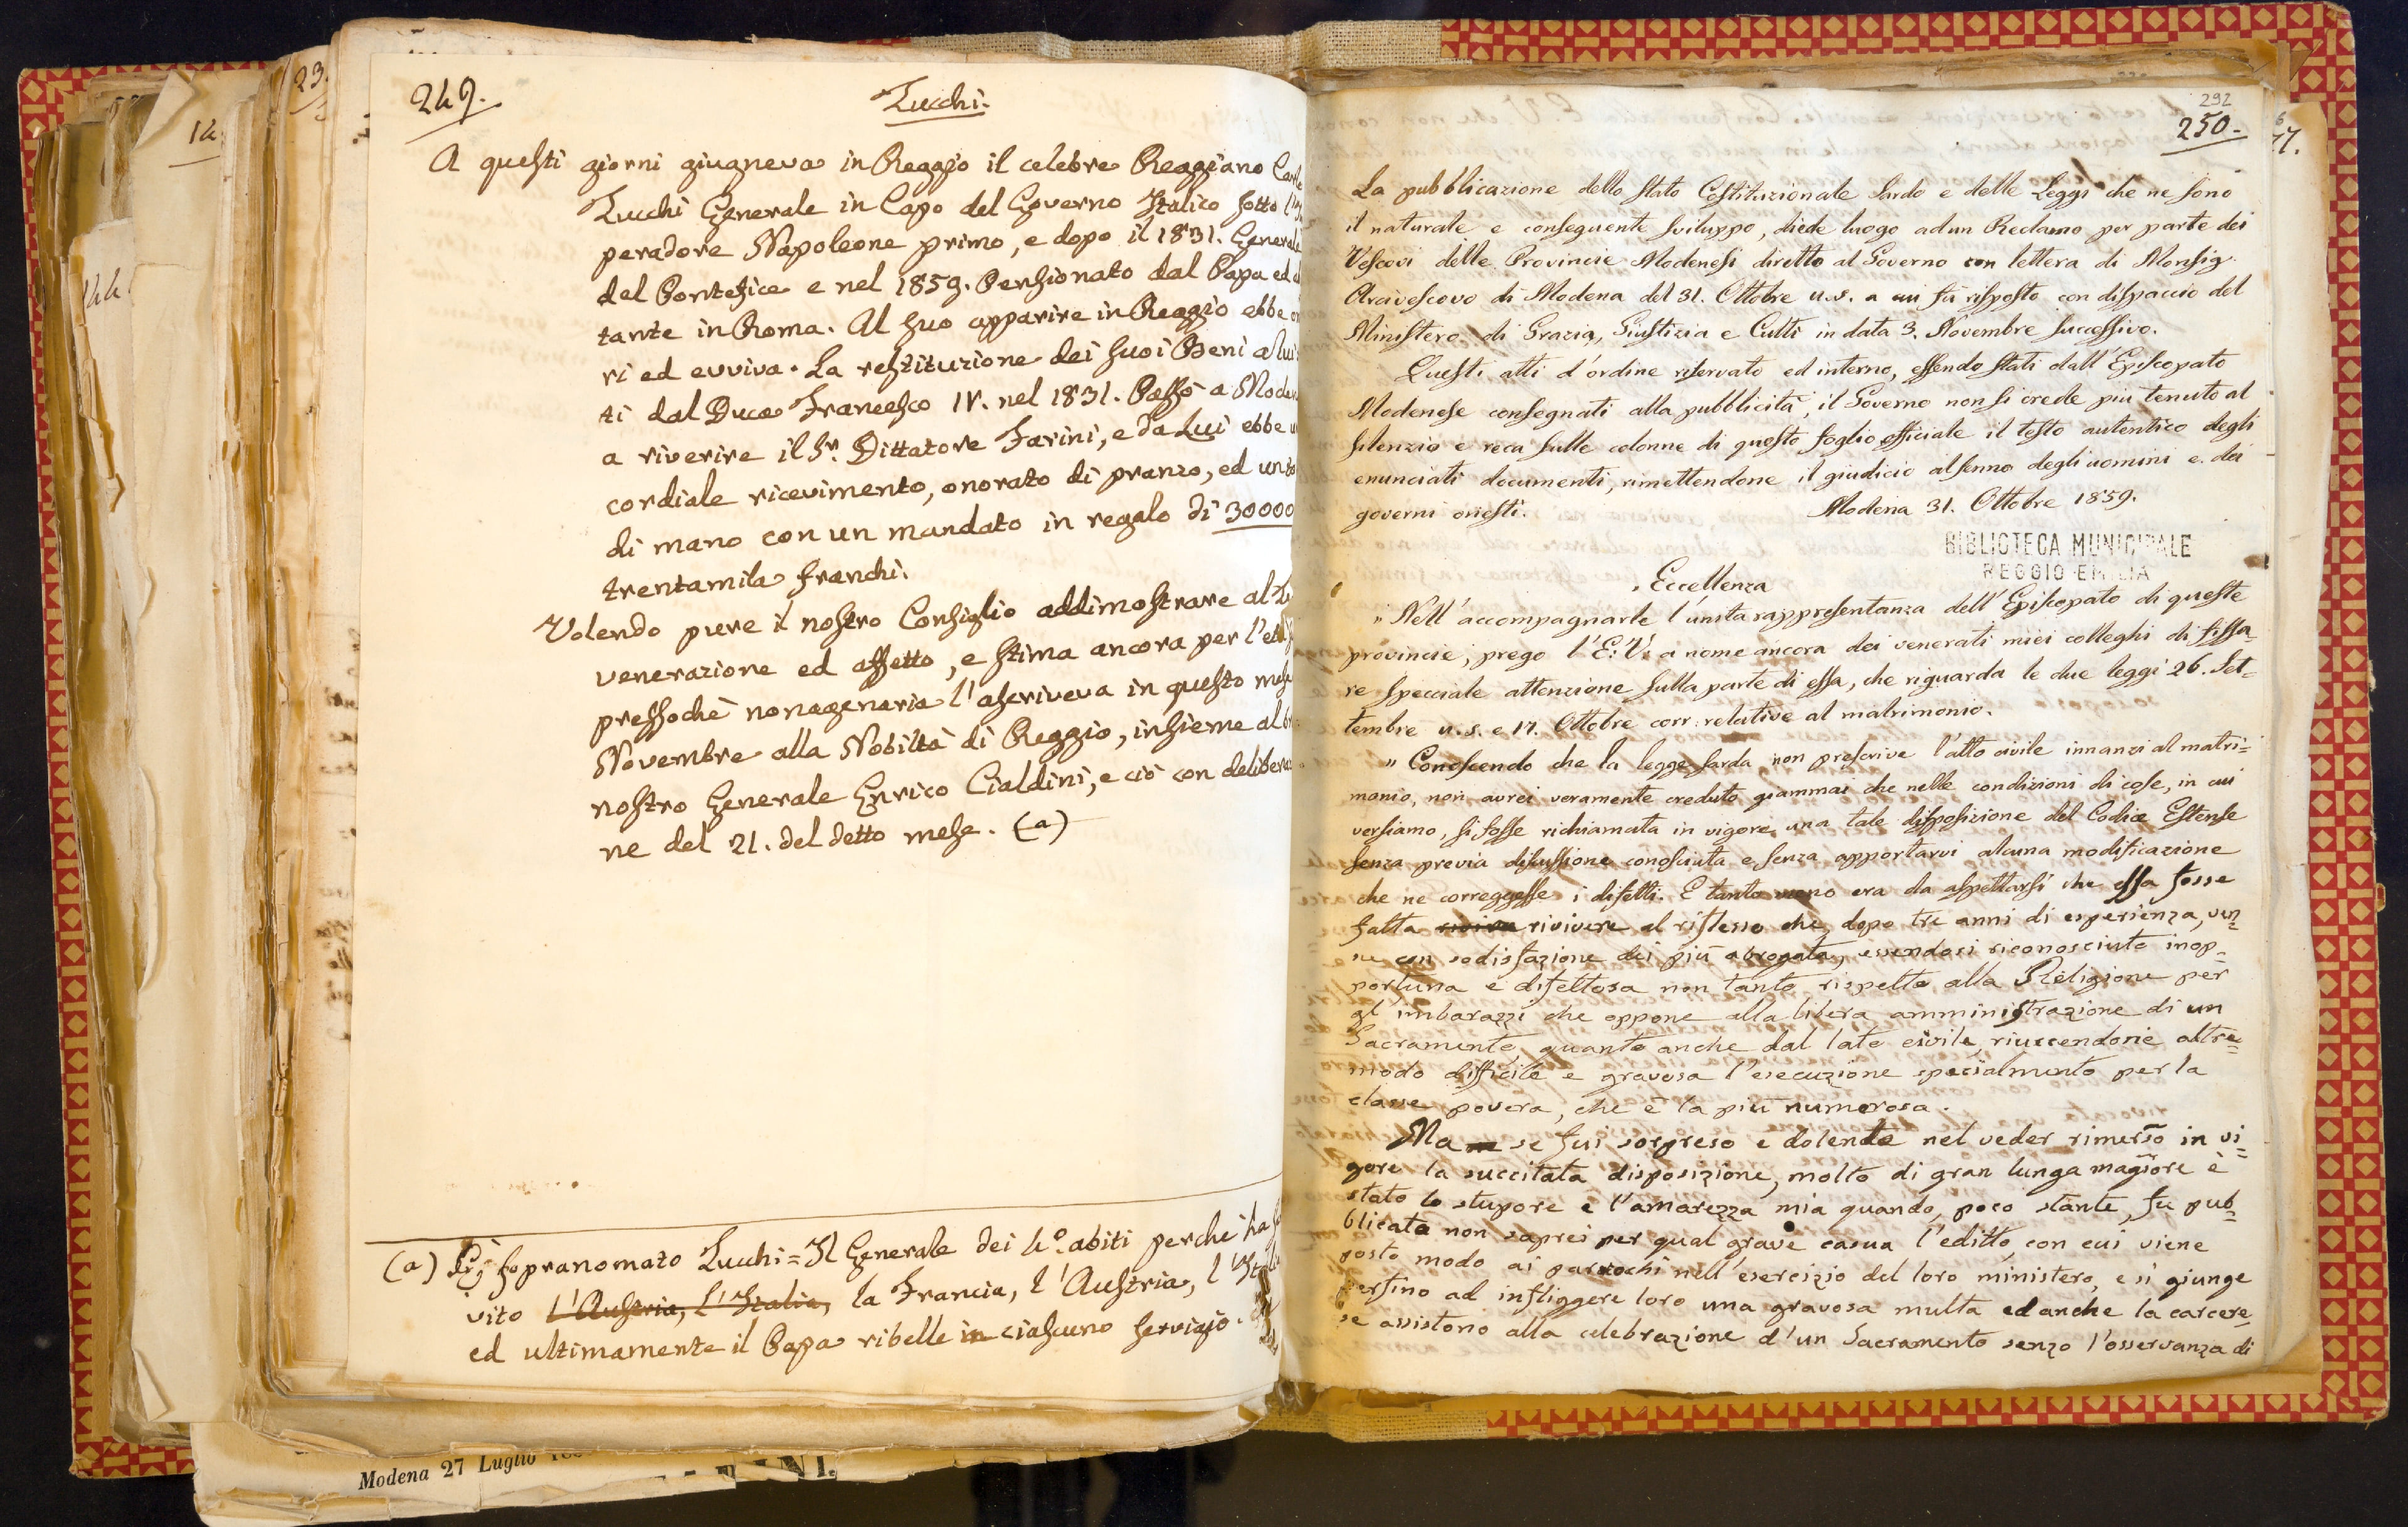 249.
Zucchi.
A questi giorni giugneva in Reggio il celebre Reggiano Carlo
Zucchi Generale in Capo del Governo Italico sotto l'
peradore Napoleone primo, e dopo il 1831. Generale
del Pontefice e nel 1859. Pensionato dal Papa ed
tante in Roma. Al suo apparire in Reggio ebbe
ri ed evviva. La restituzione dei suoi Beni a lui
ti dal Duca Francesco IV. nel 1831. Passò a Modena
a riverire il Sr. Dittatore Farini, e da Lui ebbe
cordiale ricevimento, onorato di pranzo, ed un
di mano con un mandato in regalo di 30000
trentamila franchi.
Volendo pure il nostro Consiglio addimostrare al
venerazione ed affetto, e stima ancora per l'età
pressochè nonagenaria l'ascriveva in questo mese
Novembre alla Nobiltà di Reggio, insieme al
nostro Generale Enrico Cialdini, e ciò con delibera
ne del 21. del detto mese. (a)
(a) sopranomato Zucchi = Il Generale dei 4.o abiti perchè ha
vito l'Austria, l'Italia, la Francia, l'Austria, l'
ed ultimamente il Papa ribelle in ciascuno servigio.
23.
14
144
Modena 27 Luglio
INI.
292
250.
77.
La pubblicazione dello Stato Costituzionale Sardo e delle Leggi che ne sono
il naturale e conseguente sviluppo, diede luogo ad un Reclamo per parte dei
Vescovi delle Provincie Modenesi diretto al Governo con lettera di Monsig.
Arcivescovo di Modena del 31. Ottobre u.s. a cui fù risposto con dispaccio del
Ministero di Grazia, Giustizia e Culti in data 3. Novembre successivo.
Questi atti d'ordine riservato ed interno, essendo stati dall'Episcopato
Modenese consegnati alla pubblicità, il Governo non si crede più tenuto al
silenzio e reca sulle colonne di questo foglio officiale il testo autentico degli
enunciati documenti, rimettendone il giudicio al senno degli uomini e dei
governi onesti.
Modena 31. Ottobre 1859.
BIBLIOTECA MUNICIPALE
REGGIO EMILIA
Eccellenza
" Nell'accompagnarle l'unita rappresentanza dell'Episcopato di queste
provincie, prego l'E: V: a nome ancora dei venerati miei colleghi di fissa=
re speciale attenzione sulla parte di essa, che riguarda le due leggi 26. Set=
tembre u.s. e 17. Ottobre corr: relative al matrimonio.
" Conoscendo che la legge sarda non prescrive l'atto civile innanzi al matri=
monio, non avrei veramente creduto giammai che nelle condizioni di cose, in cui
versiamo, si fosse richiamata in vigore una tale disposizione del Codice Estense
senza previa discussione conosciuta e senza apportarvi alcuna modificazione
che ne correggesse i difetti. E tanto meno era da aspettarsi che essa fosse
fatta rivivere al riflesso che, dopo tre anni di esperienza, ven=
ne con sodisfazione dei più abrogata, essendosi riconosciuta inop=
portuna e difettosa non tanto rispetto alla Religione per
gl'imbarazzi che oppone alla libera amministrazione di un
Sacramento, quanto anche dal lato civile, riuscendone altre=
modo difficile e gravosa l'esecuzione specialmente per la
classe povera, che è la più numerosa.
Ma se fui sorpreso e dolente nel veder rimesso in vi=
gore la succitata disposizione, molto di gran lunga maggiore è
stato lo stupore e l'amarezza mia quando, poco stante, fu pub=
blicato non saprei per qual grave causa l'editto, con cui viene
posto modo ai parrochi nell'esercizio del loro ministero, e si giunge
persino ad infliggere loro una gravosa multa ed anche la carcere
se assistono alla celebrazione d'un Sacramento senza l'osservanza di